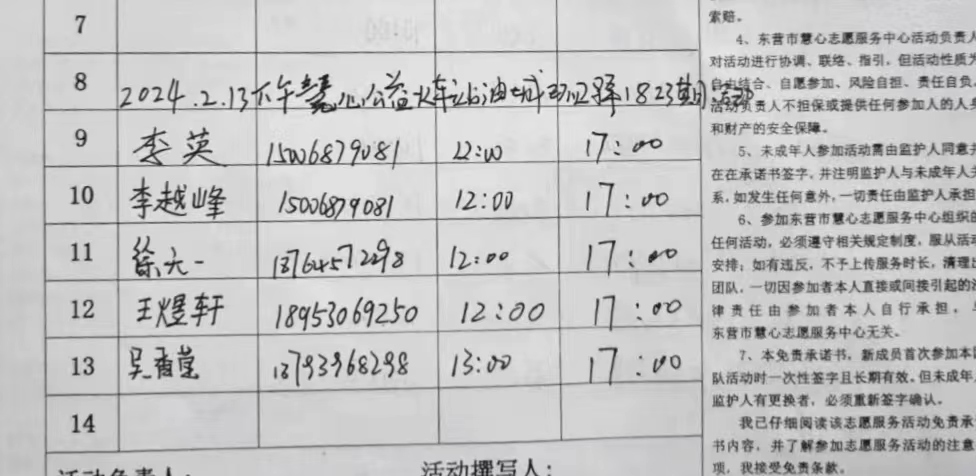 7
8 2024.2.13下午慧心公益火车站油城驿1823期活动
9 李英 15006879081 12:00 17:00
10 李越峰 15006879081 12:00 17:00
11 徐元一 13764572298 12:00 17:00
12 王煜轩 18953069250 12:00 17:00
13 吴香堂 13793968298 13:00 17:00
14
活动负责人: 活动撰写人:
索赔。
4、东营市慧心志愿服务中心活动负责人
对活动进行协调、联络、指引，但活动性质为
自由结合、自愿参加、风险自担、责任自负。
活动负责人不担保或提供任何参加人的人身
和财产的安全保障。
5、未成年人参加活动需由监护人同意并
在在承诺书签字，并注明监护人与未成年人关
系，如发生任何意外，一切责任由监护人承担
6、参加东营市慧心志愿服务中心组织的
任何活动，必须遵守相关规定制度，服从活动
安排；如有违反，不予上传服务时长，清理出
团队，一切因参加者本人直接或间接引起的法
律责任由参加者本人自行承担，与
东营市慧心志愿服务中心无关。
7、本免责承诺书，新成员首次参加本团
队活动时一次性签字且长期有效。但未成年人
监护人有更换者，必须重新签字确认。
我已仔细阅读该志愿服务活动免责承
书内容，并了解参加志愿服务活动的注意
项，我接受免责条款。